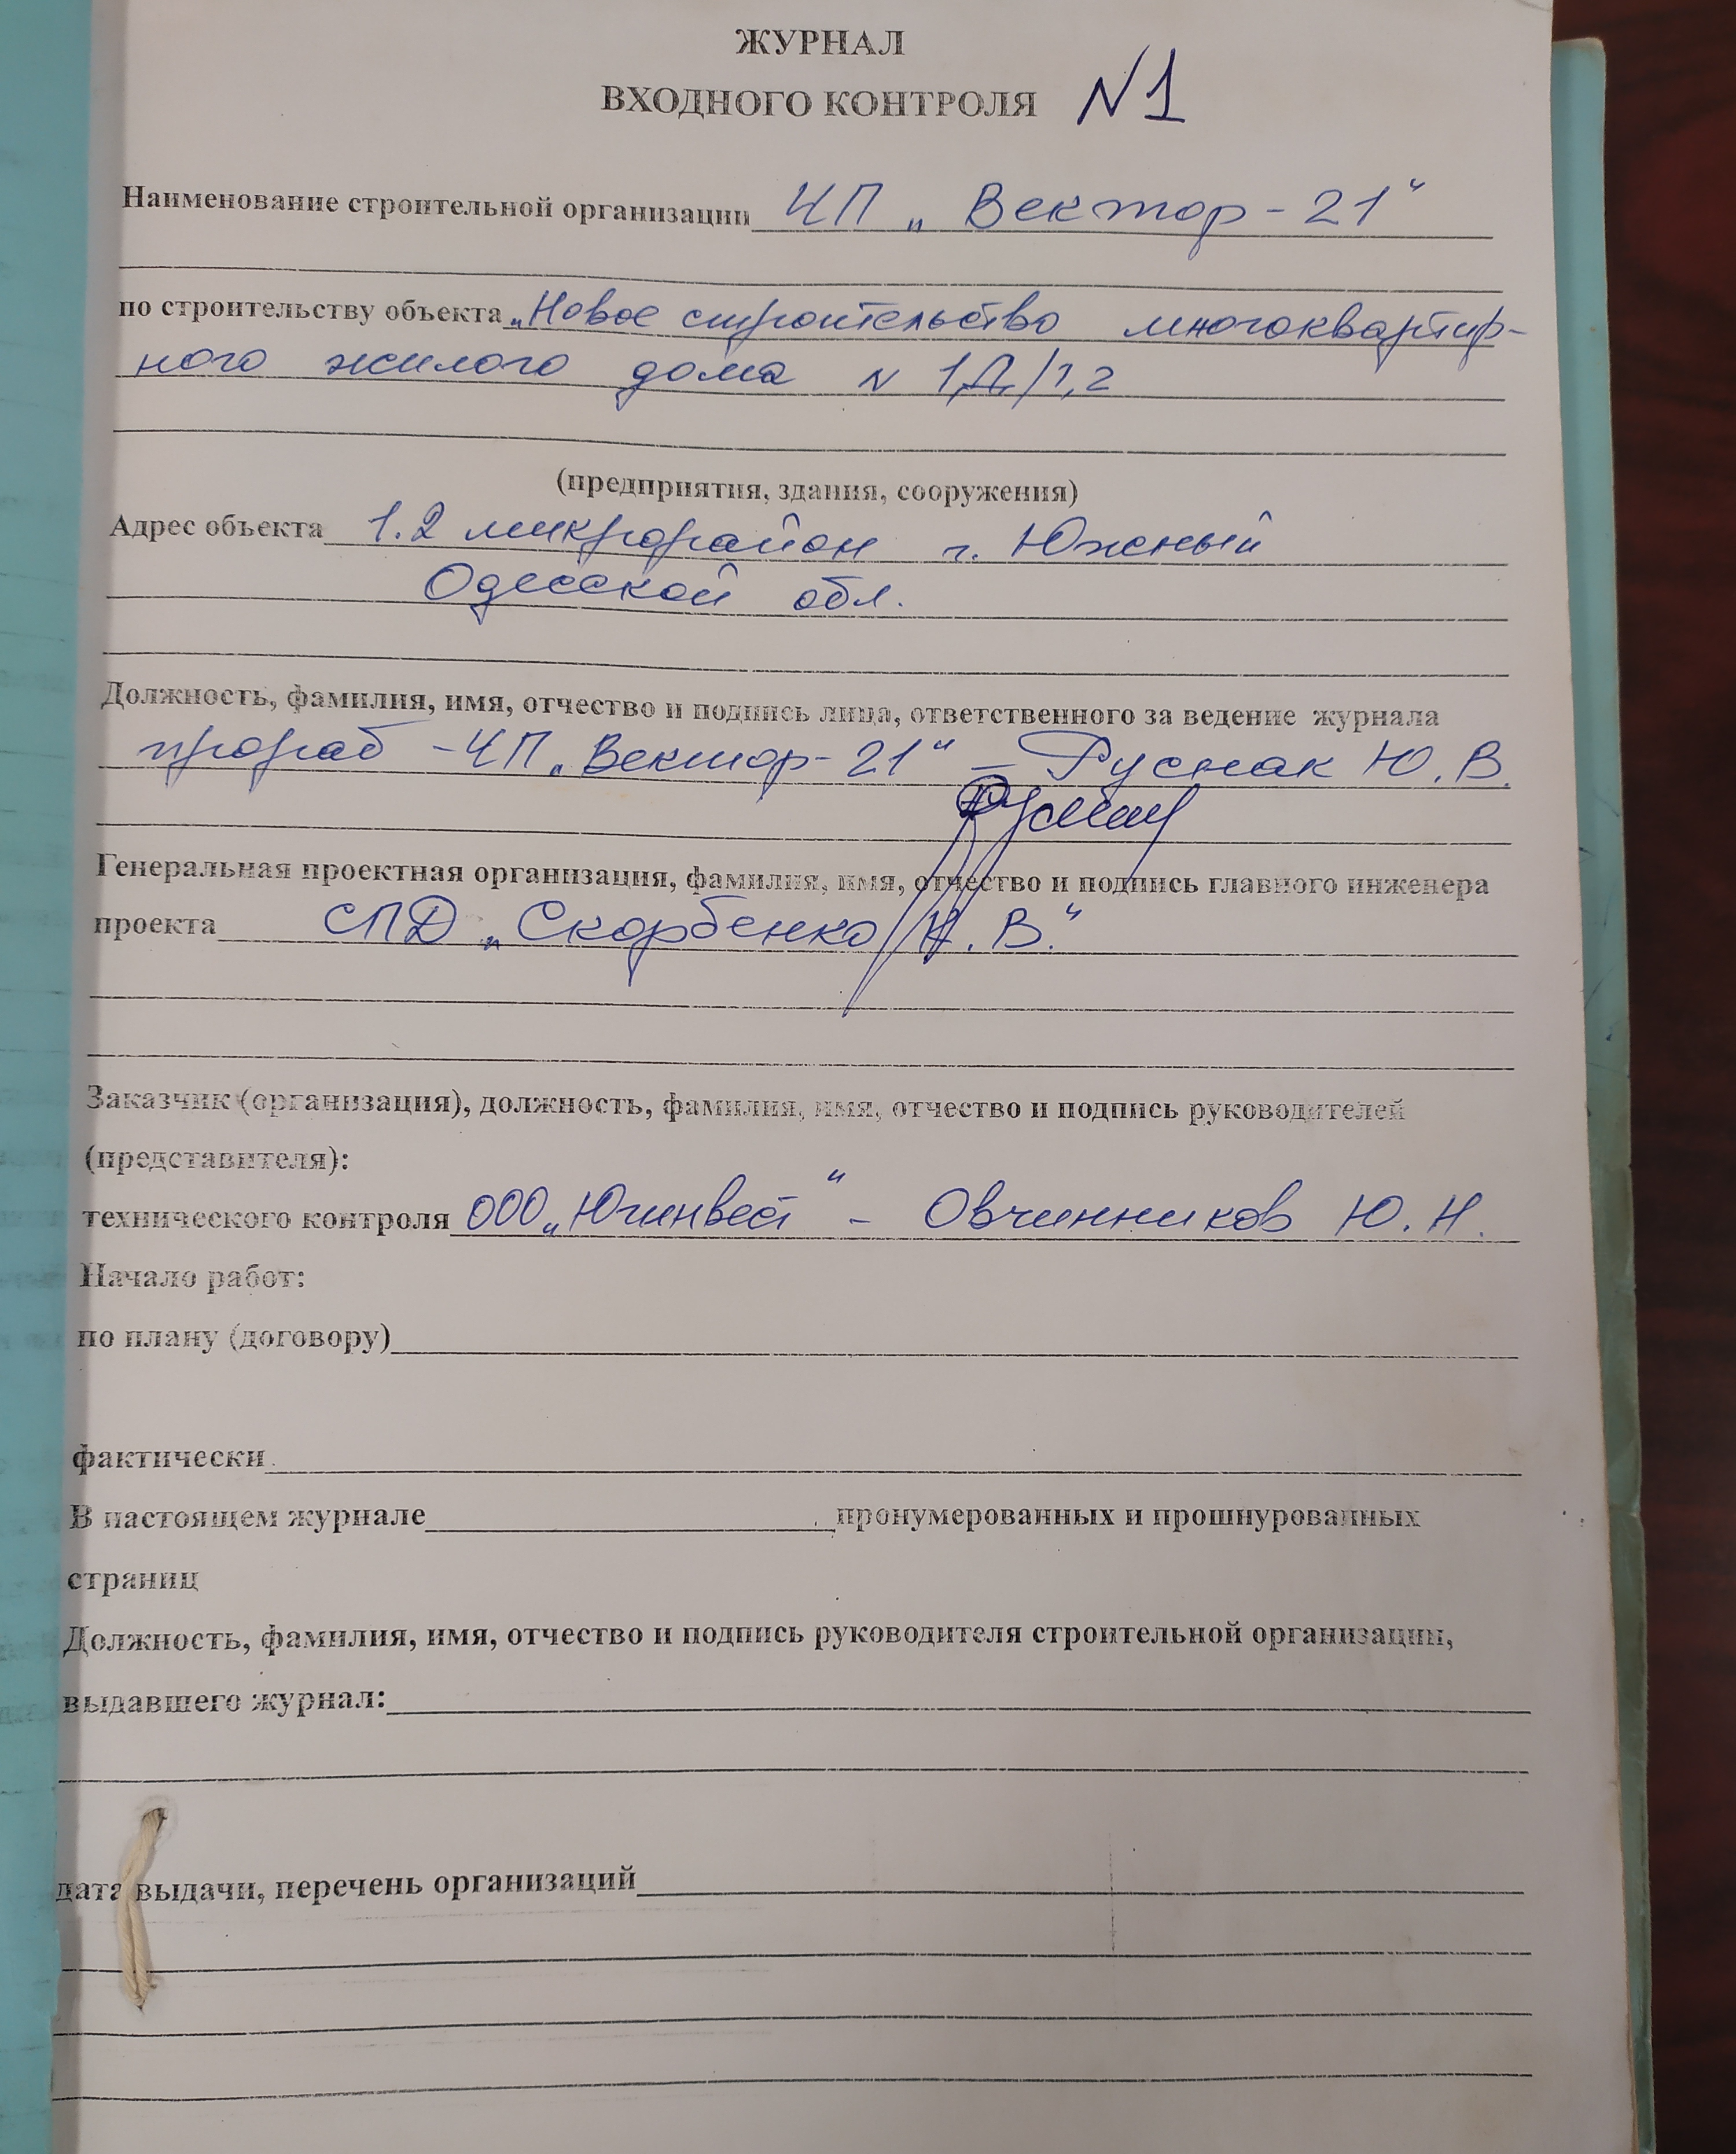 ЖУРНАЛ
ВХОДНОГО КОНТРОЛЯ N1
Наименование строительной организации ЧП „Вектор-21“
по строительству объекта „Новое строительство многоквартир-
ного жилого дома N 1Д/1,2
(предприятия, здания, сооружения)
Адрес объекта 1.2 микрорайон г. Южный
Одесской обл.
Должность, фамилия, имя, отчество и подпись лица, ответственного за ведение журнала
прораб - ЧП „Вектор-21“ - Руснак Ю.В.
Генеральная проектная организация, фамилия, имя, отчество и подпись главного инженера
проекта СПД „Скорбенко Н.В.“
Заказчик (организация), должность, фамилия, имя, отчество и подпись руководителей
(представителя):
технического контроля ООО „Югинвест“ - Овчинников Ю.Н.
Начало работ:
по плану (договору)
фактически
В настоящем журнале пронумерованных и прошнурованных
страниц
Должность, фамилия, имя, отчество и подпись руководителя строительной организации,
выдавшего журнал:
дата выдачи, перечень организаций